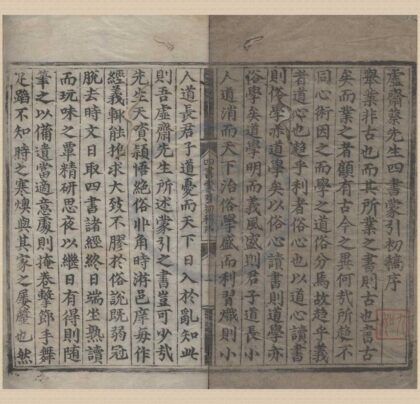 虛齋蔡先生四書蒙引初稿序
舉業非古也而其所業之書則古也書古
矣而業之者顧有古今之異何哉所趨不
同心術因之而學之道俗分焉故趨乎義
者道心也趨乎利者俗心也以道心讀書
則俗學亦道學矣以俗心讀書則道學亦
俗學矣道學明而義風盛則君子道長小
人道消而天下治俗學盛而利習熾則小
四書蒙引初稿序
人道長君子道憂而天下日入於亂知此
則吾虛齋先生所述蒙引之書豈可少哉
先生天資穎悟絕俗丱角時游邑庠每作
經義輒能推求大致不膠於俗說既弱冠
脫去時文日取四書諸經終日端坐熟讀
而玩味之覃精研思夜以繼日有得則隨
筆之以備遺當適意處則掩卷擊節手舞
足蹈不知時之寒燠與其家之屢罄也然